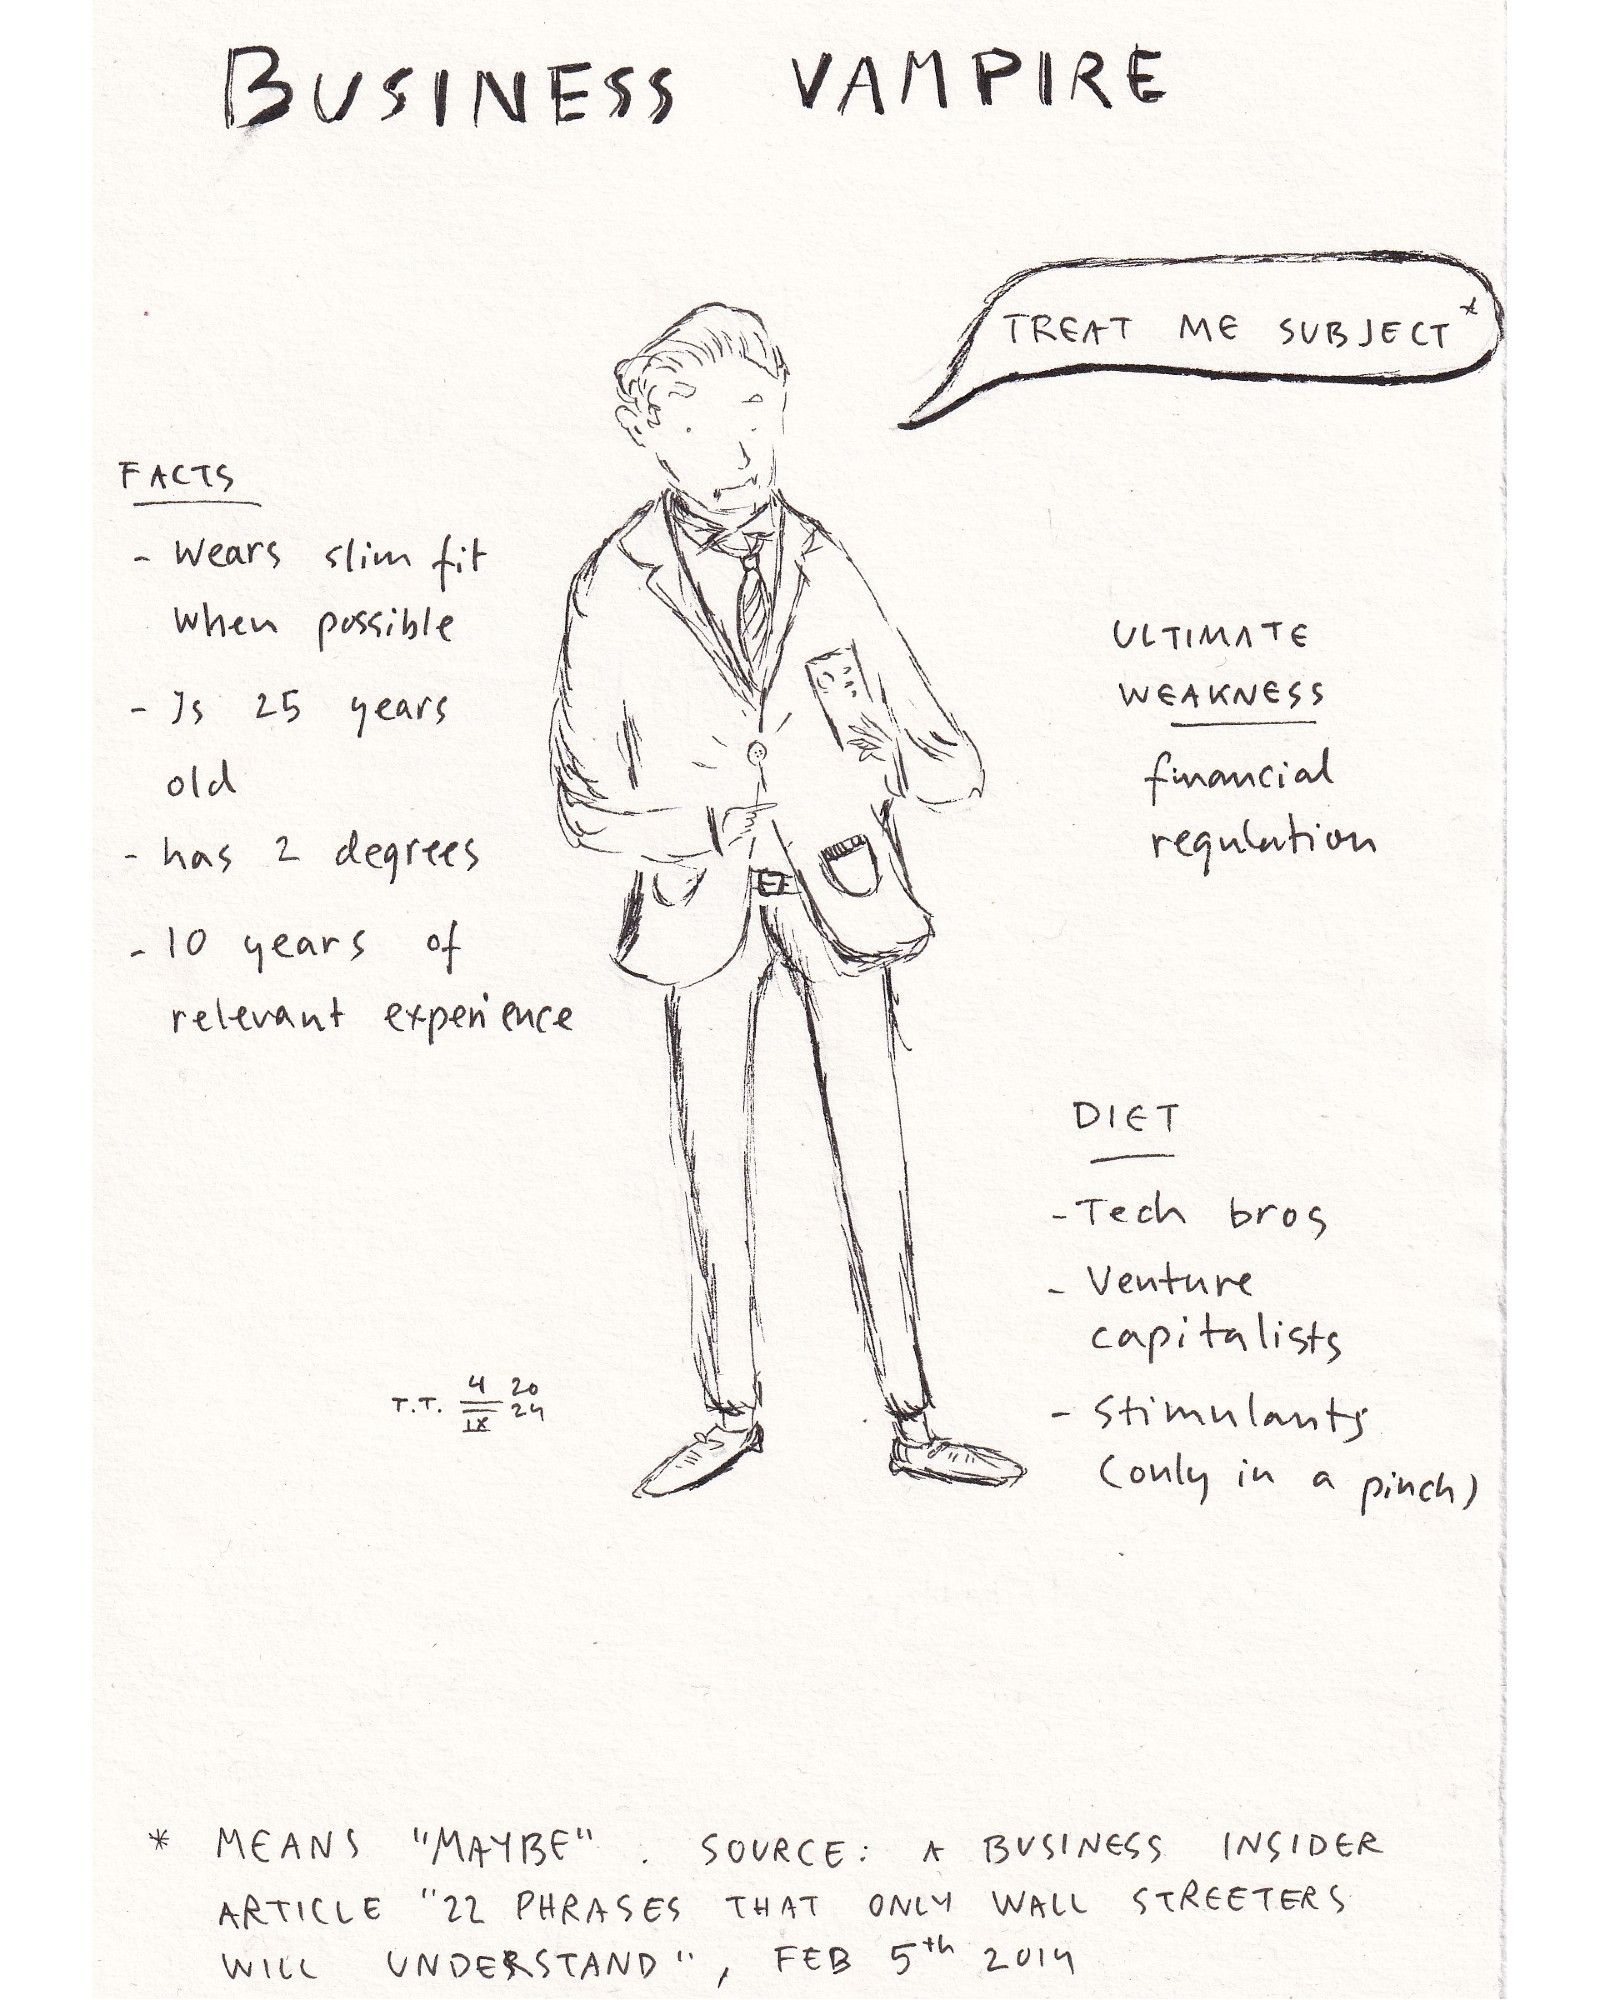 BUSINESS VAMPIRE
TREAT ME SUBJECT*
FACTS
- Wears slim fit
when possible
- Is 25 years
old
- has 2 degrees
- 10 years of
relevant experience
ULTIMATE
WEAKNESS
financial
regulation
DIET
- Tech bros
- Venture
capitalists
- Stimulants
(only in a pinch)
T.T. 4 20
IX 24
* MEANS "MAYBE". SOURCE: A BUSINESS INSIDER
ARTICLE "22 PHRASES THAT ONLY WALL STREETERS
WILL UNDERSTAND", FEB 5th 2014